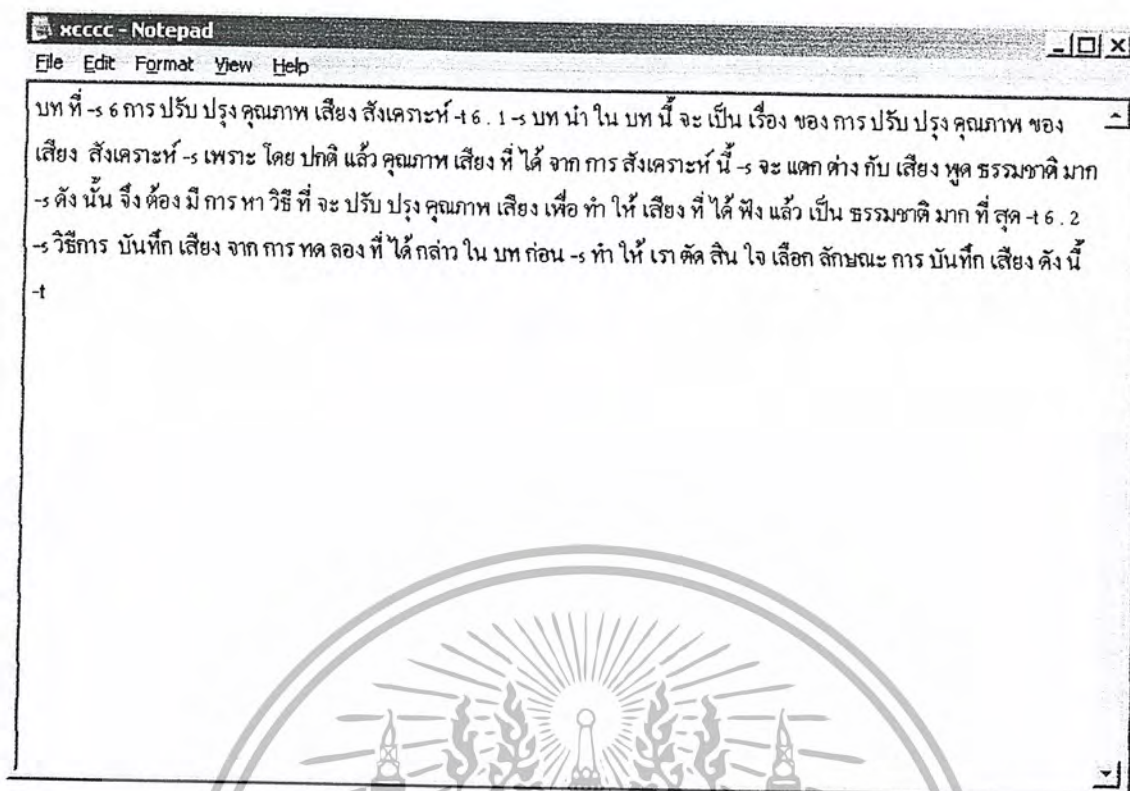 xcccc - Notepad
File Edit Format View Help
บท ที่ -s 6 การ ปรับ ปรุง คุณภาพ เสียง สังเคราะห์ -t 6 . 1 -s บท นำ ใน บท นี้ จะ เป็น เรื่อง ของ การ ปรับ ปรุง คุณภาพ ของ
เสียง สังเคราะห์ -s เพราะ โดย ปกติ แล้ว คุณภาพ เสียง ที่ ได้ จาก การ สังเคราะห์ นี้ -s จะ แตก ต่าง กับ เสียง พูด ธรรมชาติ มาก
-s ดัง นั้น จึง ต้อง มี การ หา วิธี ที่ จะ ปรับ ปรุง คุณภาพ เสียง เพื่อ ทำ ให้ เสียง ที่ ได้ ฟัง แล้ว เป็น ธรรมชาติ มาก ที่ สุด -t 6 . 2
-s วิธีการ บันทึก เสียง จาก การ ทด ลอง ที่ ได้ กล่าว ใน บท ก่อน -s ทำ ให้ เรา ตัด สิน ใจ เลือก ลักษณะ การ บันทึก เสียง ดัง นี้
-t